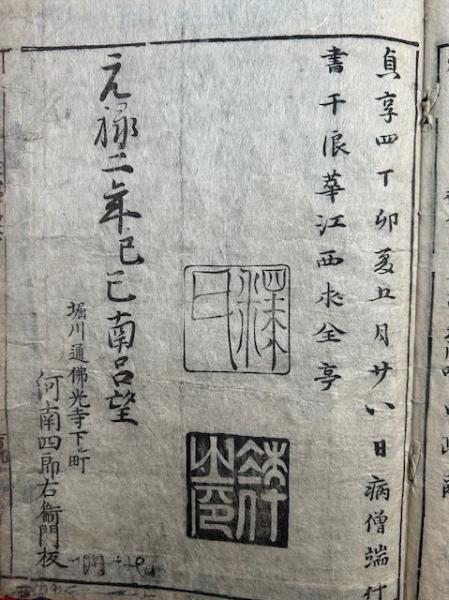 貞享四丁卯夏五月廿八日病僧端什
書于浪華江西求全亭
元禄二年己巳南呂望
堀川通佛光寺下ル町
河南四郎右衞門板